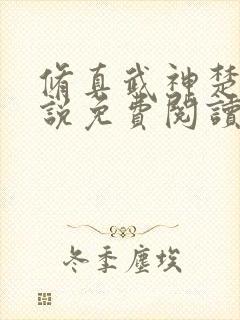 脩真武神楚
說免費閱讀
冬季塵埃